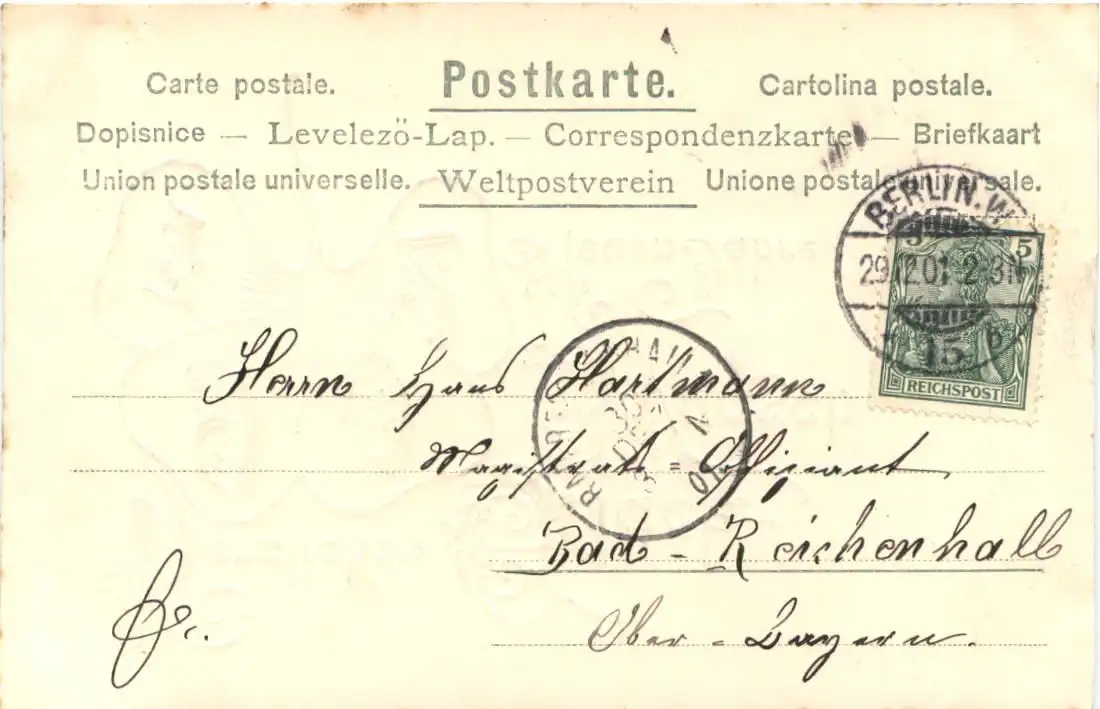 Carte postale. Postkarte. Cartolina postale.
Dopisnice — Levelező-Lap. — Correspondenzkarte — Briefkaart
Union postale universelle. Weltpostverein Unione postale universale.
BERLIN. W.
29.12.01. 2-3N
15. b
5 5
REICHSPOST
Herrn Hans Hartmann
Magistrats-Offiziant
Bad-Reichenhall
Ober-Bayern.